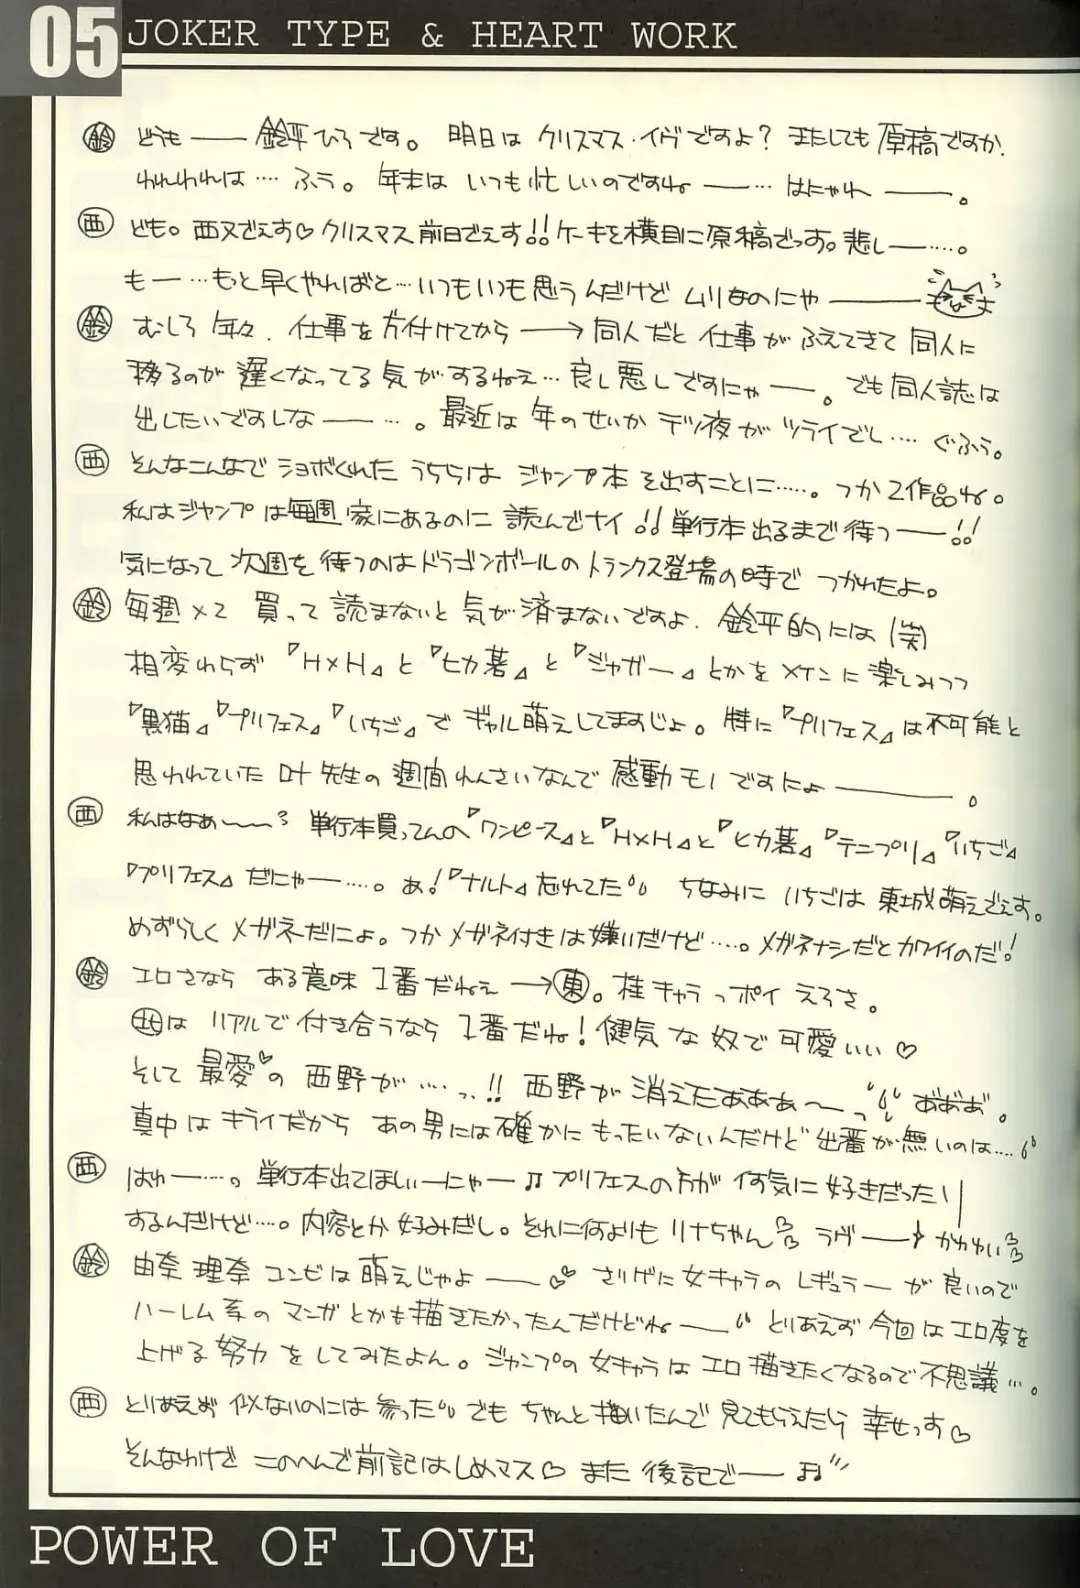 05 JOKER TYPE & HEART WORK
鈴 どうも── 鈴平ひろです。 明日は クリスマス・イヴですよ? またしても原稿ですか.
われわれは…. ふぅ。 年末は いつも忙しいのですね ──… はにゃれ ───。
西 ども。西又でぇす♡クリスマス前日でぇす!!ケーキを横目に原稿でっす。悲し──….。
も─ …もっと早くやればと…いつもいつも思うんだけど ムリなのにゃ ────
鈴 むしろ 年々、仕事を片付けてから ──→ 同人だと 仕事が ふえてきて 同人に
移るのが 遅くなってる気がするねぇ… 良し悪しですにゃ──。 でも同人誌は
出したいですしな ── … 。 最近は 年のせいか デツ夜が ツライでし…. ぐふぅ。
西 そんなこんなで ショボくれた うちらは ジャンプ本 を出すことに…..。 つか2作品ね。
私はジャンプは毎週家にあるのに 読んでナイ!!単行本出るまで待つ──!!
気になって 次週を 待つのはドラゴンボールのトランクス登場の時で つかれたよ。
鈴 毎週×2 買って 読まないと 気が済まないですよ. 鈴平的には (笑)
相変わらず 『H×H』と『ヒカ碁』と『ジャガー』とかをメインに楽しみつつ
『黒猫』『プリフェス』『いちご』で ギャル萌えしてますじょ。 特に『プリフェス』は不可能と
思われていた 叶 先生の 週間 れんさいなんで 感動モノですにょ ─────。
西 私はなぁ〜〜? 単行本買ってんの『ワンピース』と『H×H』と『ヒカ碁』『テニプリ』『いちご』
『プリフェス』だにゃー….。 あ!『ナルト』忘れてた ちなみに いちごは 東城萌えでぇす。
めずらしく メガネだにょ。つか メガネ付きは嫌いだけど….。メガネナシだとカワイイのだ!
鈴 エロさなら ある意味 1番だねぇ ─→ 東。 桂キャラっポイ えろさ。
北は リアルで 付き合うなら 1番だね! 健気な 奴で 可愛いい ♡
そして 最愛♡の 西野が …. っ..!! 西野が 消えたあああ〜っ あぁぁ。
真中は キライだから あの男には 確かに もったいないんだけど 出番が無いのは….
西 はれー….。 単行本出てほしいーにゃー♫ プリフェスの方が 何気に 好きだったり
するんだけど….。内容とか 好みだし。それに何よりも リナちゃん ラヴ── かわいい
鈴 由奈 理奈 コンビは 萌えじゃよ ── ♡ さりげに 女キャラの レギュラーが 良いので
ハーレム系の マンガとかも描きたかったんだけどね── とりあえず 今回は エロ度を
上げる 努力 を してみたよん。 ジャンプの 女キャラは エロ 描きたくなるので 不思議…。
西 とりあえず 似ないのには 参った でも ちゃんと描いたんで 見てもらえたら 幸せっす♡
そんなわけで このへんで 前記はしめマス♡ また 後記で── ♫
POWER OF LOVE